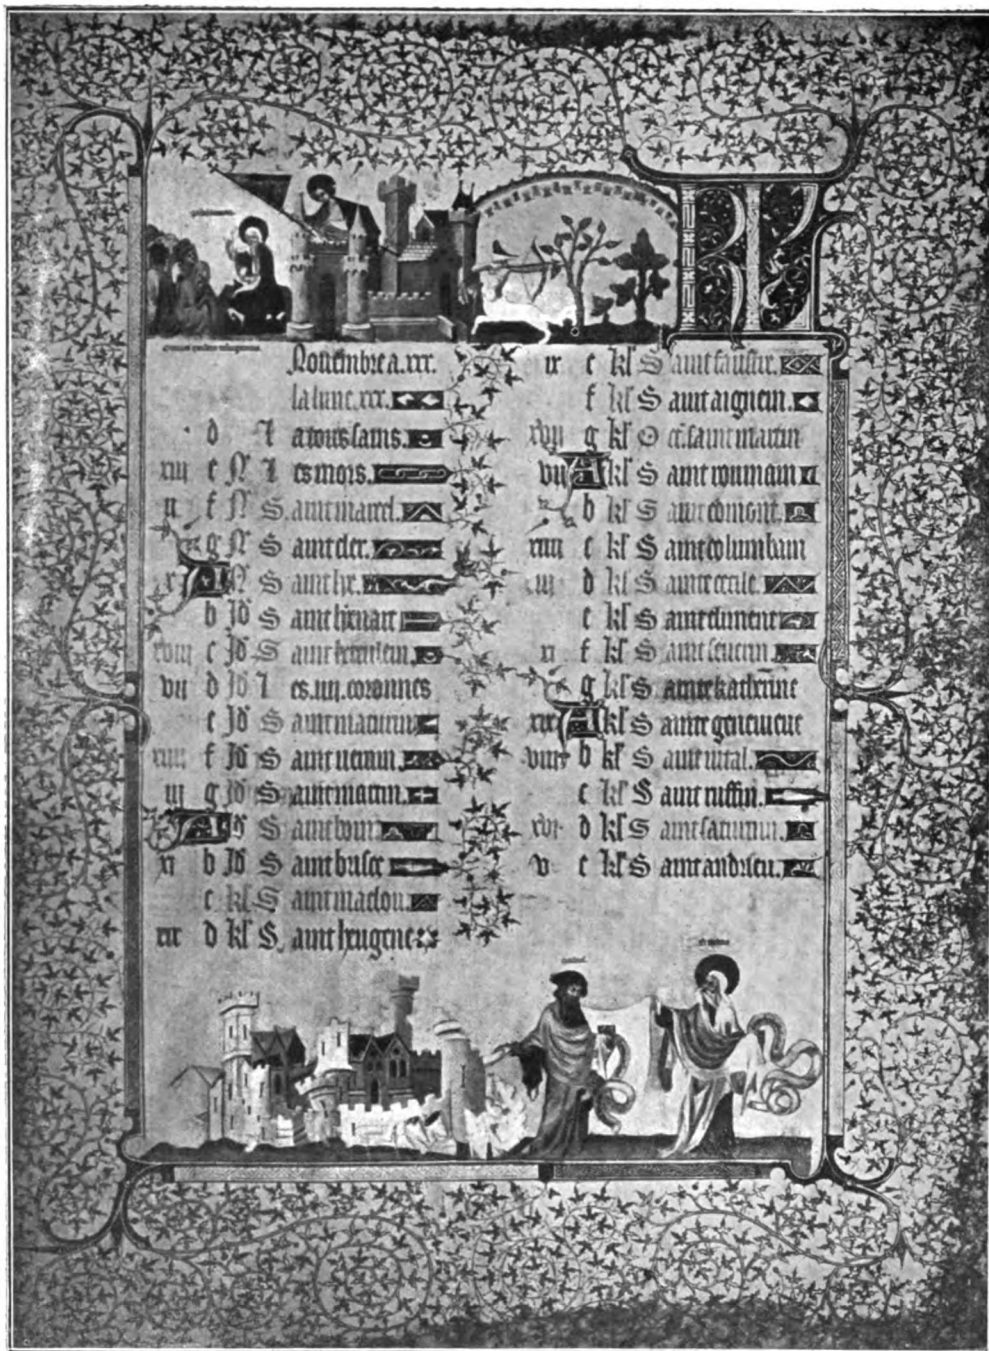 KL
Novembre a .xxx.
la lune .xxx.
d L a tous sains.
xiii e N L es mors.
ii f N S aint marcel.
g N S aint cler.
x A N S aint lye.
b Id S aint lienart
xviii c Id S aint
vii d Id L es .iiii. coronnes
e Id S aint maturin
f Id S aint
iii g Id S aint martin.
A Id S aint
xi b Id S aint brisce
c kl S aint maclou.
xix d kl S. aint eugene
ix e kl S aint
f kl S aint aignein.
xvii g kl O ct. saint martin
vii A kl S aint roumain
b kl S aint edmont.
xiiii c kl S aint columbam
iii d kl S ainte cecile.
e kl S aint climent
xi f kl S aint severin
g kl S ainte katherine
xix A kl S ainte genevieve
viii b kl S aint vital.
c kl S aint ruffin.
xvi d kl S aint saturnin.
v e kl S aint andrieu.